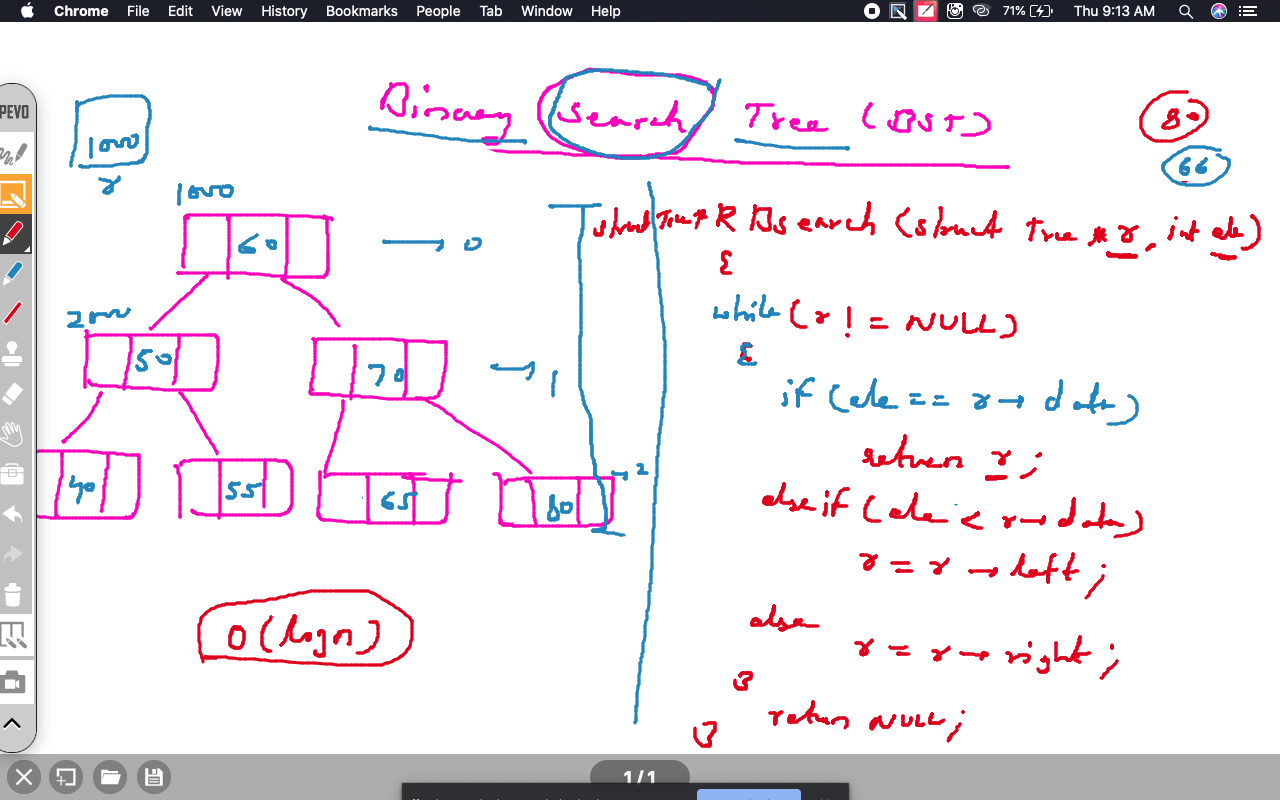 Chrome File Edit View History Bookmarks People Tab Window Help 71% Thu 9:13 AM
PEVO
Binary Search Tree (BST)
80
66
1000
r
1000
60 → 0
2000
50 70 → 1
40 55 65 80 → 2
O(logn)
struct Tree* RBSearch (struct Tree *r, int ele)
{
while (r != NULL)
{
if (ele == r→data)
return r;
else if (ele < r→data)
r = r→left;
else
r = r→right;
}
return NULL;
}
1/1